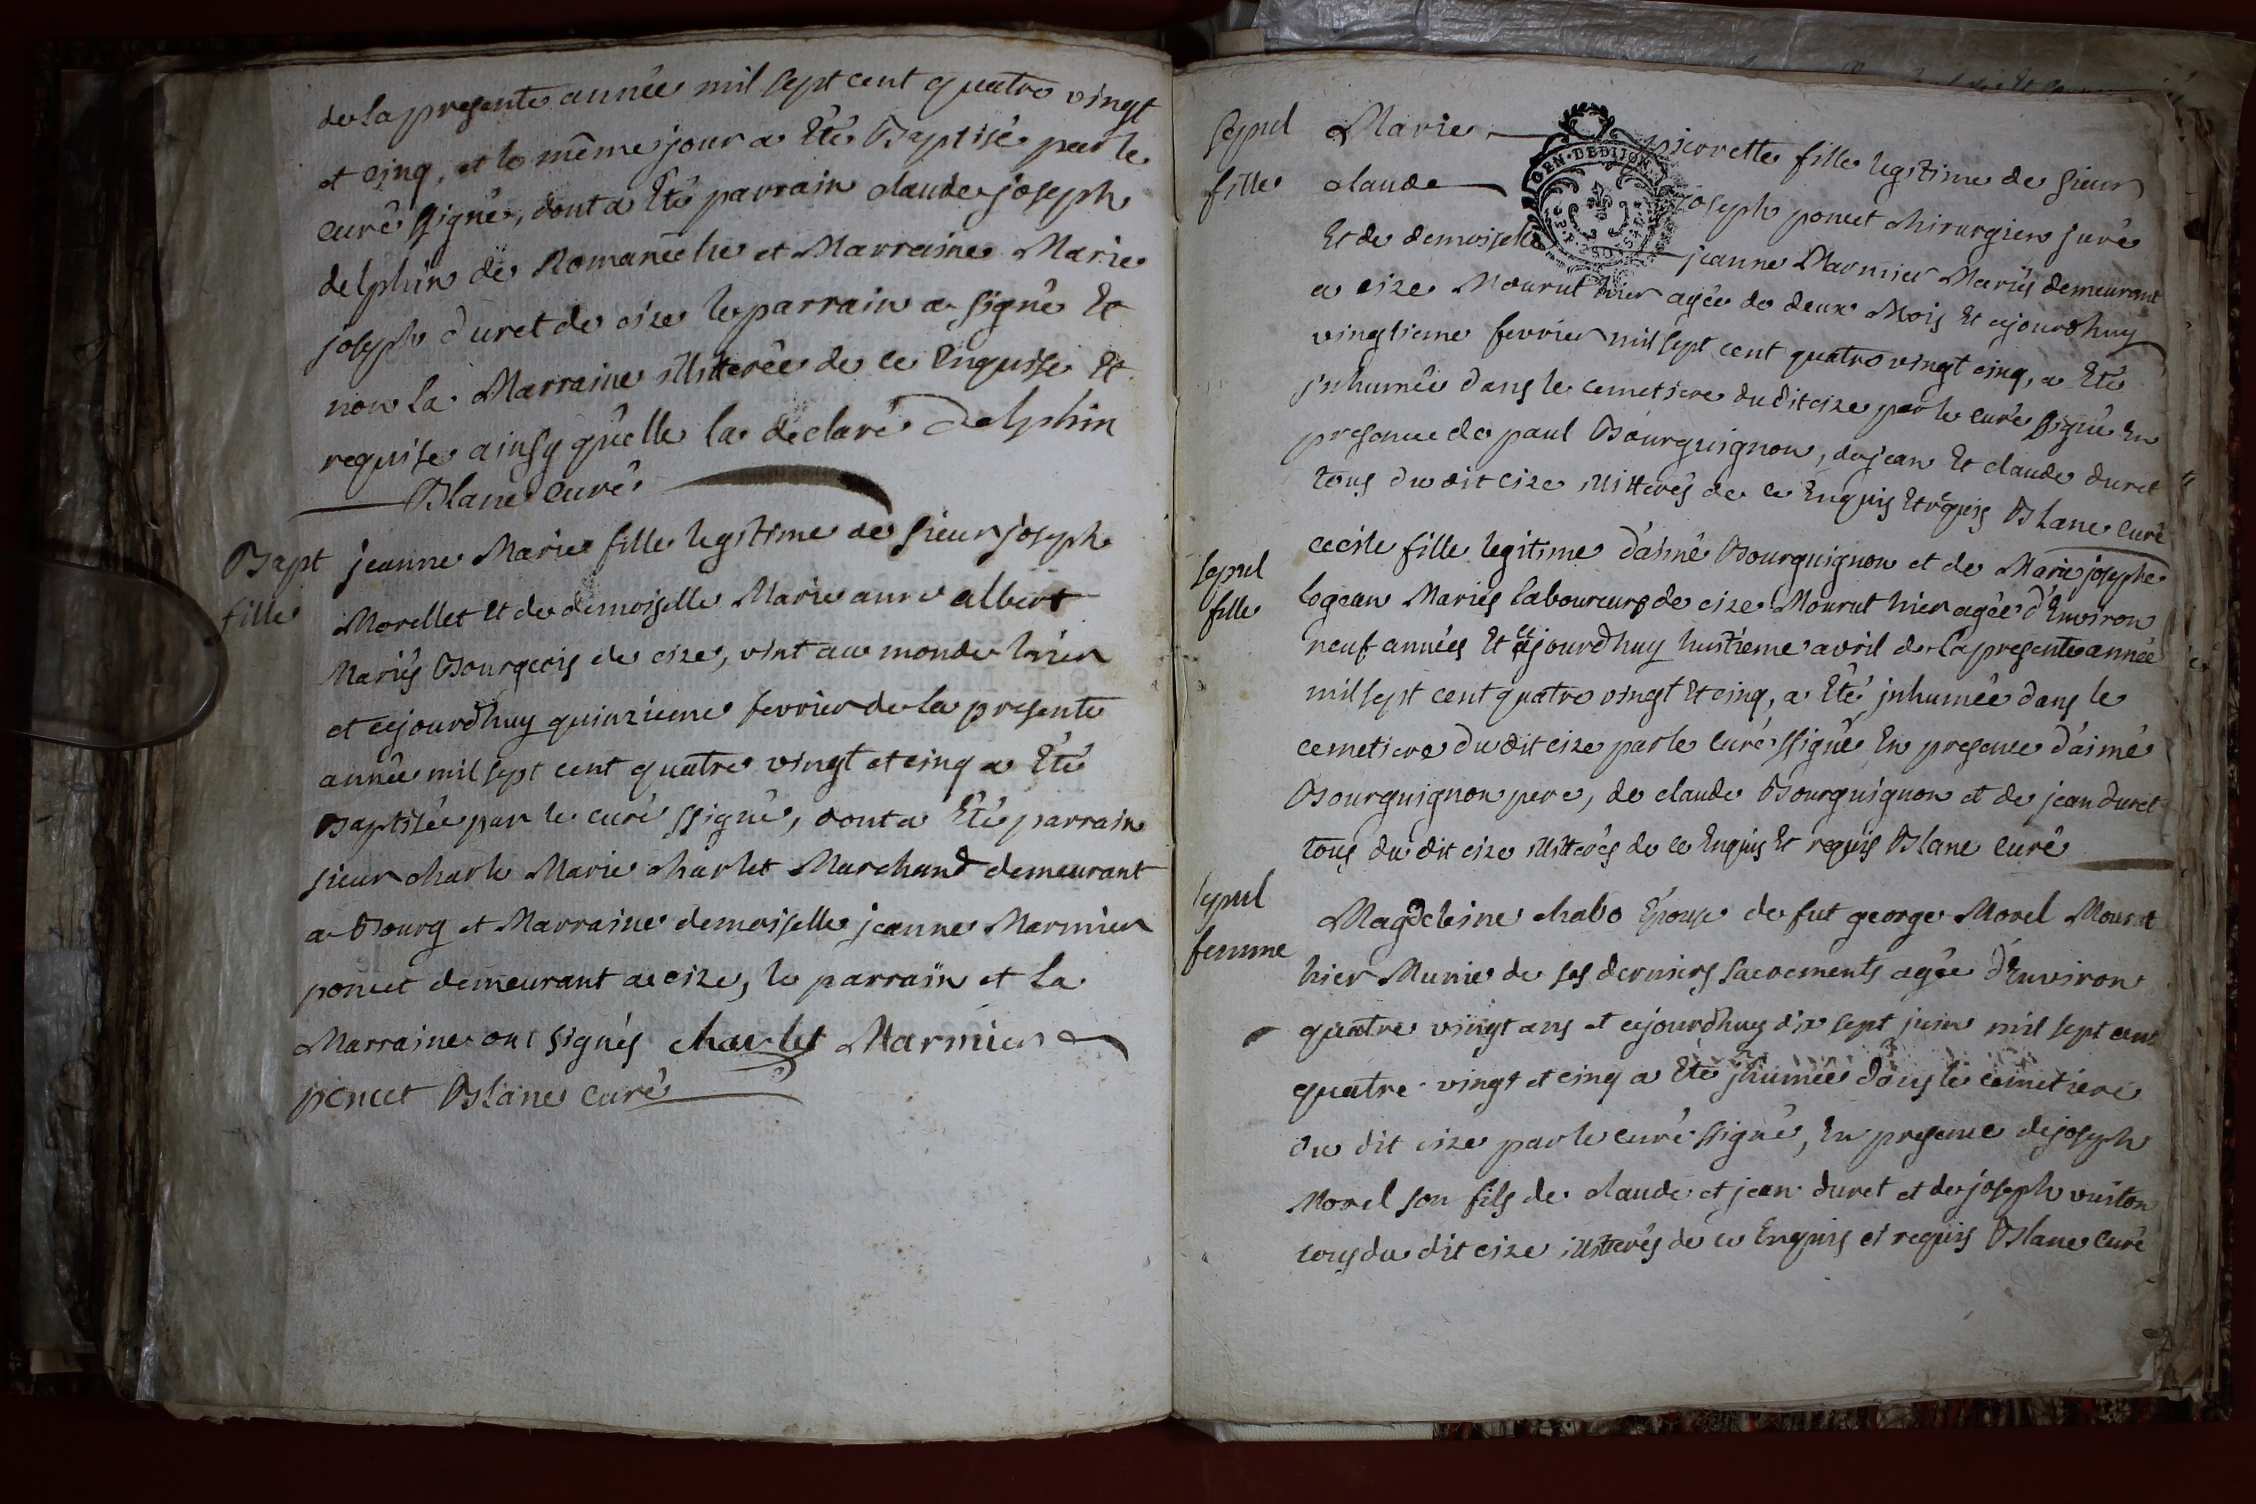 de la presente année mil sept cent quatre vingt
et cinq, et le même jour a Eté Baptisé par le
curé ssigné, dont a Eté parrain claude joseph
delphin de Romanêche et Marraine Marie
joseph duret de cize le parrain a signé Et
non la Marraine illitterée de ce Enquise Et
requise ainsy qu'elle la declaré Delphin
Blanc curé
Bapt
fille
jeanne Marie fille legitime de sieur joseph
Morellet et de demoiselle Marie anne albert
Mariés Bourgeois de cize, vint au monde hier
et cejourdhuy quinzieme fevrier de la presente
année mil sept cent quatre vingt et cinq a Eté
Baptisée par le curé ssigné, dont a Eté parrain
sieur charle Marie charlet Marchand demeurant
a Bourg et Marraine demoiselle jeanne Marmier
poncet demeurant a cize, le parrain et la
Marraine ont signés charlet Marmier
poncet Blanc curé
sepul
fille
Marie pierrette fille legitime de sieur
claude joseph poncet chirurgien juré
Et de demoiselle jeanne Marmier Mariés demeurant
a cize Mourut hier agée de deux Mois Et cejourdhuy
vingtieme fevrier mil sept cent quatre vingt cinq, a Eté
jnhumée dans le cemetiere du dit cize par le curé ssigné En
presence de paul Bourguignon, de jean Et claude duret
tous du dit cize illitterés de ce Enquis Et requis Blanc curé
sepul
fille
cecile fille legitime d'aimé Bourguignon et de Marie josephe
logean Mariés laboureurs de cize Mourut hier agée d'Environ
neuf années Et cejourdhuy huitieme avril de la presente année
mil sept cent quatre vingt Et cinq, a Eté jnhumée dans le
cemetiere du dit cize par le curé ssigné En presence d'aimé
Bourguignon pere, de claude Bourguignon et de jean duret
tous du dit cize illitterés de ce Enquis Et requis Blanc curé
sepul
femme
Magdeleine chabo Epouse de fut george Morel Mourut
hier Munie de ses derniers sacrements agée d'Environ
quatre vingt ans et cejourdhuy dix sept juin mil sept cent
quatre vingt et cinq a Eté jhumée dans le cemetiere
du dit cize par le curé ssigné, En presence de joseph
Morel son fils de claude et jean duret et de joseph vuiton
tous du dit cize illitterés de ce Enquis et requis Blanc curé
GEN. DE DIJON